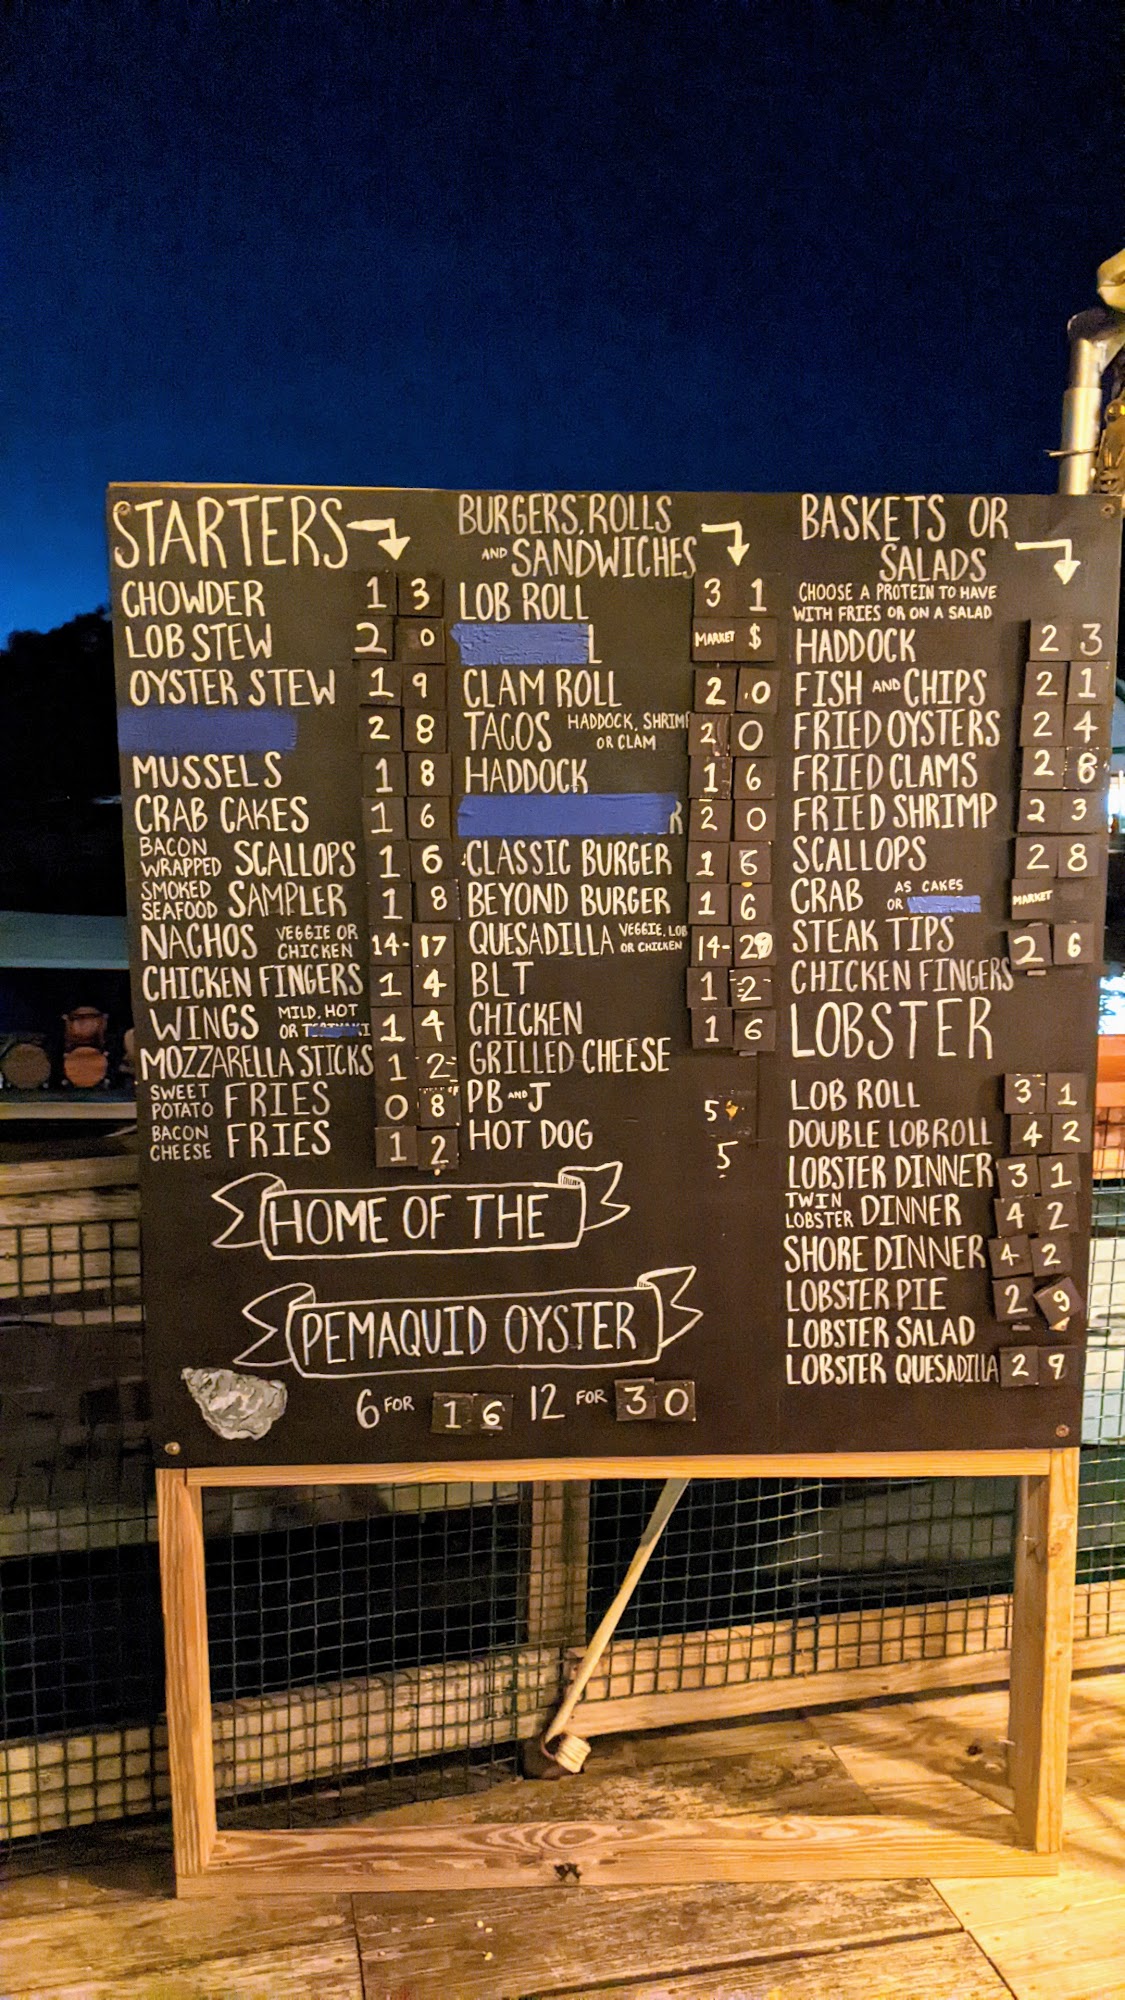 STARTERS
CHOWDER 13
LOB STEW 20
OYSTER STEW 19
28
MUSSELS 18
CRAB CAKES 16
BACON WRAPPED SCALLOPS 16
SMOKED SEAFOOD SAMPLER 18
NACHOS VEGGIE OR CHICKEN 14-17
CHICKEN FINGERS 14
WINGS MILD, HOT OR 14
MOZZARELLA STICKS 12
SWEET POTATO FRIES 08
BACON CHEESE FRIES 12
BURGERS, ROLLS
AND SANDWICHES
LOB ROLL 31
L MARKET $
CLAM ROLL 20
TACOS HADDOCK, SHRIMP OR CLAM 20
HADDOCK 16
R 20
CLASSIC BURGER 16
BEYOND BURGER 16
QUESADILLA VEGGIE, LOB OR CHICKEN 14-29
BLT 12
CHICKEN 16
GRILLED CHEESE
PB AND J 5
HOT DOG 5
BASKETS OR
SALADS
CHOOSE A PROTEIN TO HAVE
WITH FRIES OR ON A SALAD
HADDOCK 23
FISH AND CHIPS 21
FRIED OYSTERS 24
FRIED CLAMS 28
FRIED SHRIMP 23
SCALLOPS 28
CRAB AS CAKES OR MARKET
STEAK TIPS 26
CHICKEN FINGERS
LOBSTER
LOB ROLL 31
DOUBLE LOB ROLL 42
LOBSTER DINNER 31
TWIN LOBSTER DINNER 42
SHORE DINNER 42
LOBSTER PIE 29
LOBSTER SALAD
LOBSTER QUESADILLA 29
HOME OF THE
PEMAQUID OYSTER
6 FOR 16 12 FOR 30